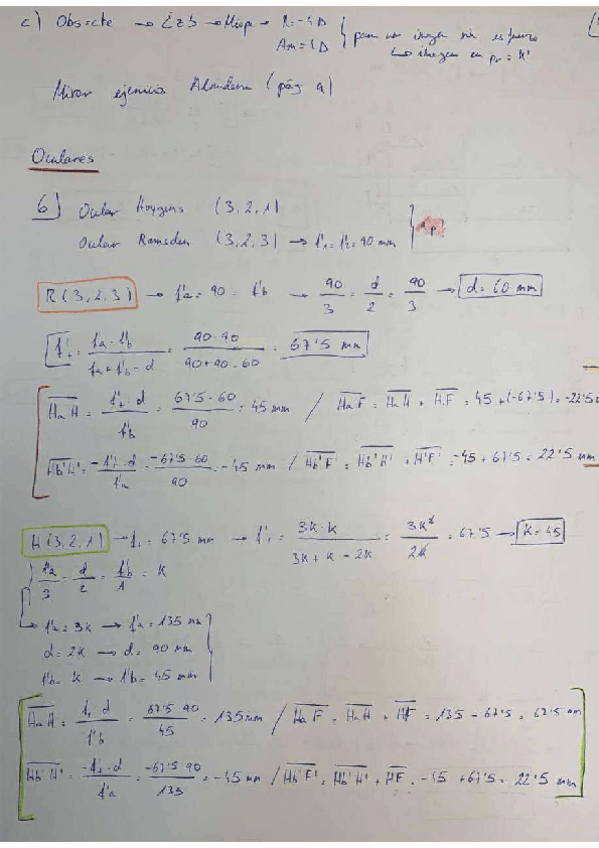 c) Obs → ¿z? → Miope → R = -4 D } para ver imagen sin esfuerzo
Am = 4 D ↳ imagen en pr = R'
Mirar ejercicio Almudena (pág 9)
Oculares
6) Ocular Huygens (3, 2, 1)
Ocular Ramsden (3, 2, 3) → f'₁ = f'₂ = 90 mm
R (3, 2, 3) → f'a = 90 = f'b → 90/3 = d/2 = 90/3 → d = 60 mm
f'ₜ = f'a · f'b / (f'a + f'b - d) = 90 · 90 / (90 + 90 - 60) = 67'5 mm
HaH = f'ₜ · d / f'b = 67'5 · 60 / 90 = 45 mm / HaF = HaH + HF = 45 + (-67'5) = -22'5 mm
Hb'H' = -f'ₜ · d / f'a = -67'5 · 60 / 90 = -45 mm / Hb'F' = Hb'H' + H'F' = -45 + 67'5 = 22'5 mm
H (3, 2, 1) → fₜ = 67'5 mm → f'ₜ = 3K · K / (3K + K - 2K) = 3K² / 2K = 67'5 → K = 45
f'a/3 = d/2 = f'b/1 = K
↳ f'a = 3K → f'a = 135 mm
d = 2K → d = 90 mm
f'b = K → f'b = 45 mm
HaH = fₜ · d / f'b = 67'5 · 90 / 45 = 135 mm / HaF = HaH + HF = 135 - 67'5 = 67'5 mm
Hb'H' = -fₜ · d / f'a = -67'5 · 90 / 135 = -45 mm / Hb'F' = Hb'H' + HF = -45 + 67'5 = 22'5 mm